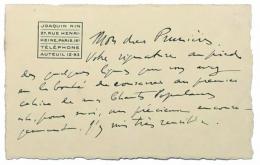 JOAQUIN NIN
27, RUE HENRI-
HEINE, PARIS, 16e
TÉLÉPHONE
AUTEUIL 12-93
Mon cher
Votre signature au pied
des quelques lignes que vous avez
eu la bonté de consacrer au premier
cahier de mes Chants Populaires
pour moi, un précieux encou-
ragement. J'y suis très sensible.